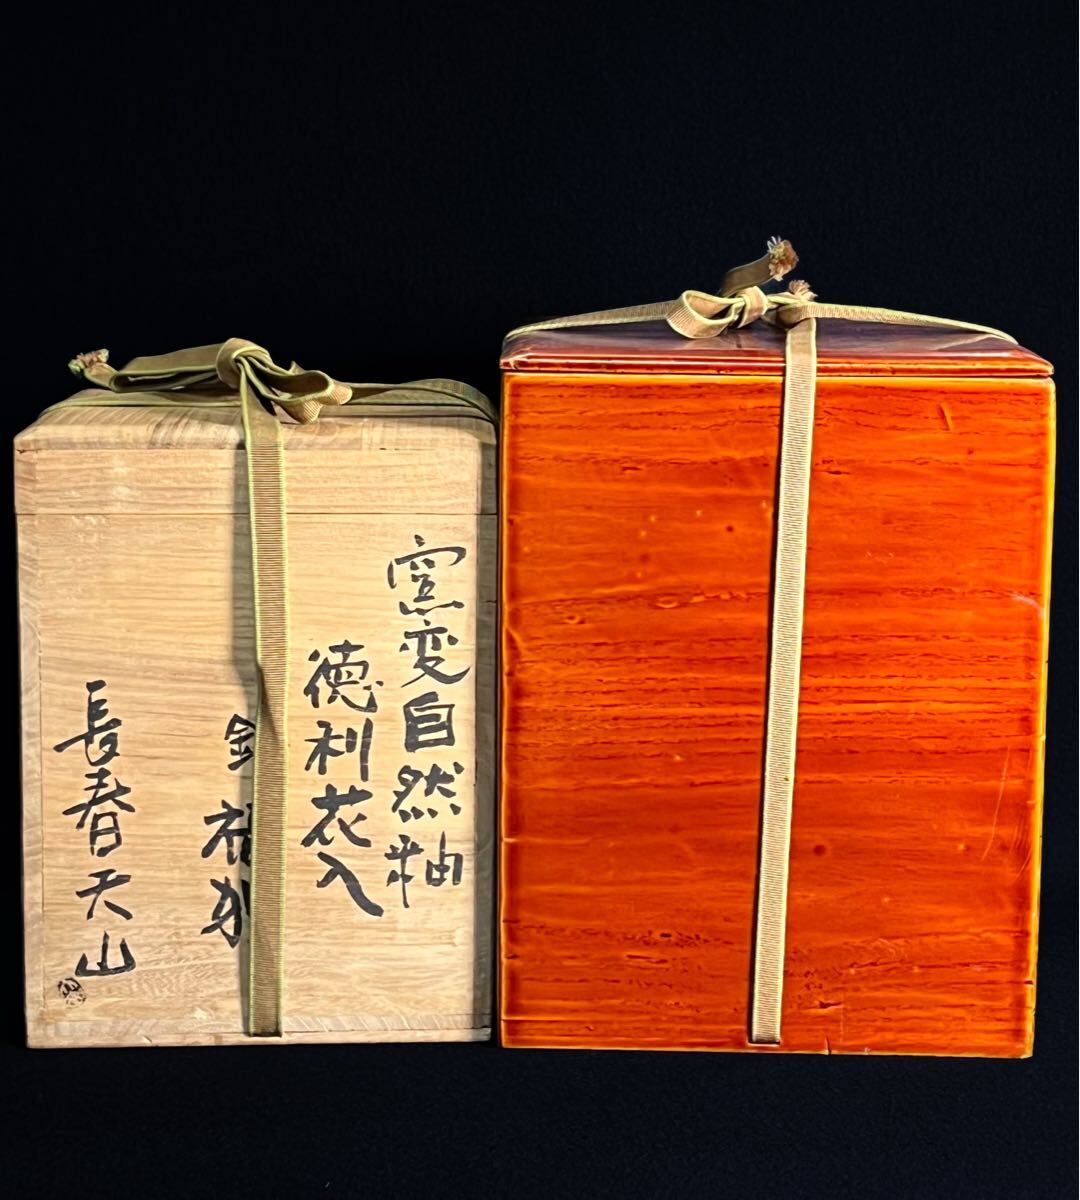 窯変自然釉
徳利花入
銘
長春天山